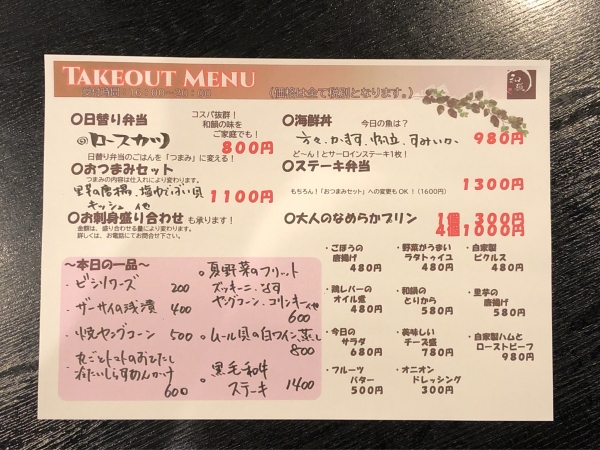 TAKEOUT MENU
(価格は全て税別となります。)
〇日替り弁当
コスパ抜群!
和韻の味を
ご家庭でも!
ロースカツ
800円
日替り弁当のごはんを「つまみ」に変える!
〇おつまみセット
つまみの内容は仕入れにより変わります。
キッシュ 他
1100円
〇お刺身盛り合わせ も承ります!
金額は、盛り合わせる量により変わります。
詳しくは、お電話にてお問合せ下さい。
〇海鮮丼
今日の魚は?
980円
ど〜ん!とサーロインステーキ1枚!
〇ステーキ弁当
1300円
もちろん!「おつまみセット」への変更もOK!(1600円)
〇大人のなめらかプリン
1個 300円
4個1000円
〜本日の一品〜
・ビシソワーズ 200
・ザーサイの浅漬 400
・焼ヤングコーン 500
・丸ごとトマトのおひたし
冷たいしらすあんかけ
600
・夏野菜のフリット
ズッキーニ、なす
ヤングコーン、コリンキー他
600
・ムール貝の白ワイン蒸し
800
・黒毛和牛
ステーキ 1400
・ごぼうの
唐揚げ
480円
・野菜がうまい
ラタトゥイユ
480円
・自家製
ピクルス
480円
・鶏レバーの
オイル煮
480円
・和韻の
とりから
580円
・里芋の
唐揚げ
580円
・今日の
サラダ
680円
・美味しい
チーズ盛
780円
・自家製ハムと
ローストビーフ
980円
・フルーツ
バター
500円
・オニオン
ドレッシング
300円